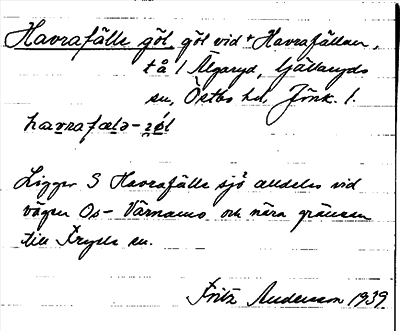 Havrafälle göl, göl vid + Havrafällan,
tå / Älgaryd, Gällaryds
sn, Östbo hd, Jönk. l.
havrafælə-
Ligger S Havrafälle sjö alldeles vid
vägen Os - Värnamo och nära gränsen
till Fryele sn.
Fritz Anderson 1939